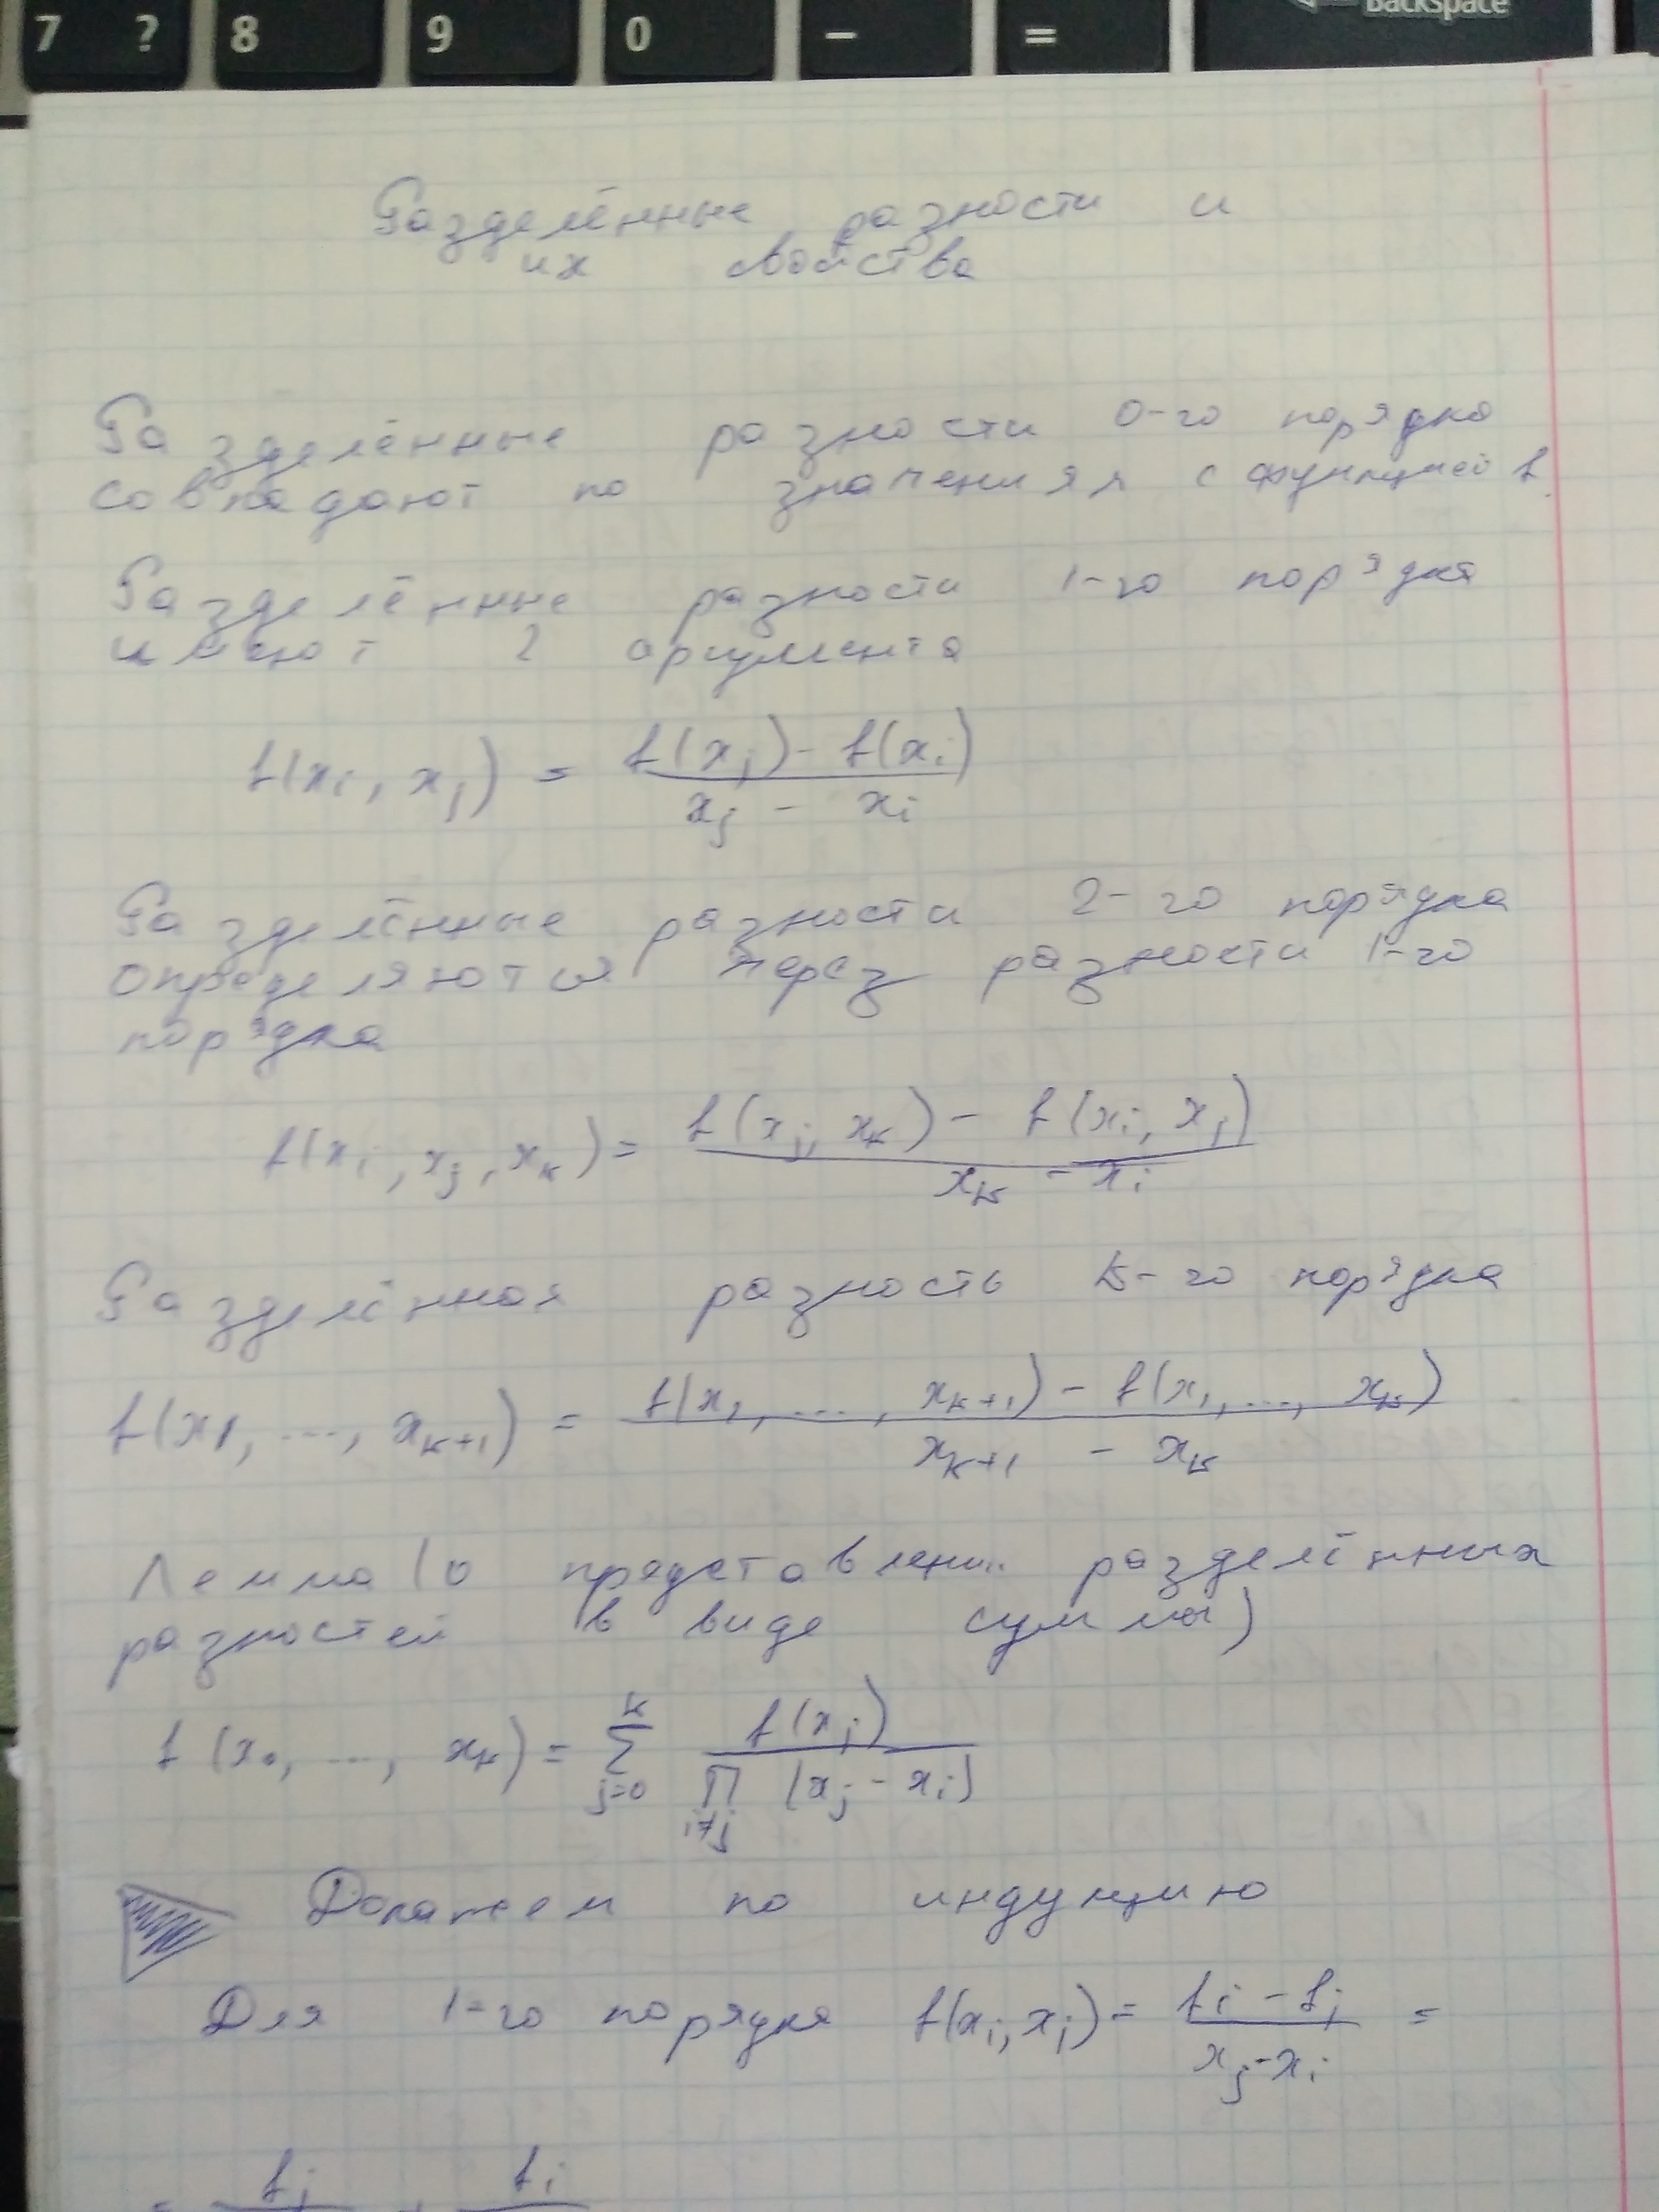 7 ? 8 9 0 - = Backspace
Разделённые разности и
их свойства
Разделённые разности 0-го порядка
совпадают по значениям с функцией f.
Разделённые разности 1-го порядка
имеют 2 аргумента
f(xᵢ, xⱼ) = (f(xⱼ) - f(xᵢ)) / (xⱼ - xᵢ)
Разделённые разности 2-го порядка
определяются через разности 1-го
порядка
f(xᵢ, xⱼ, xₖ) = (f(xⱼ, xₖ) - f(xᵢ, xⱼ)) / (xₖ - xᵢ)
Разделённая разность k-го порядка
f(x₁, ..., xₖ₊₁) = (f(x₂, ..., xₖ₊₁) - f(x₁, ..., xₖ)) / (xₖ₊₁ - xₖ)
Лемма (о представлении разделённых
разностей в виде суммы)
f(x₀, ..., xₖ) = ∑ⱼ₌₀ᵏ f(xⱼ) / ∏_{i≠j} (xⱼ - xᵢ)
Докажем по индукцию
Для 1-го порядка f(xᵢ, xⱼ) = (fᵢ - fⱼ) / (xⱼ - xᵢ) =
= fⱼ + fᵢ